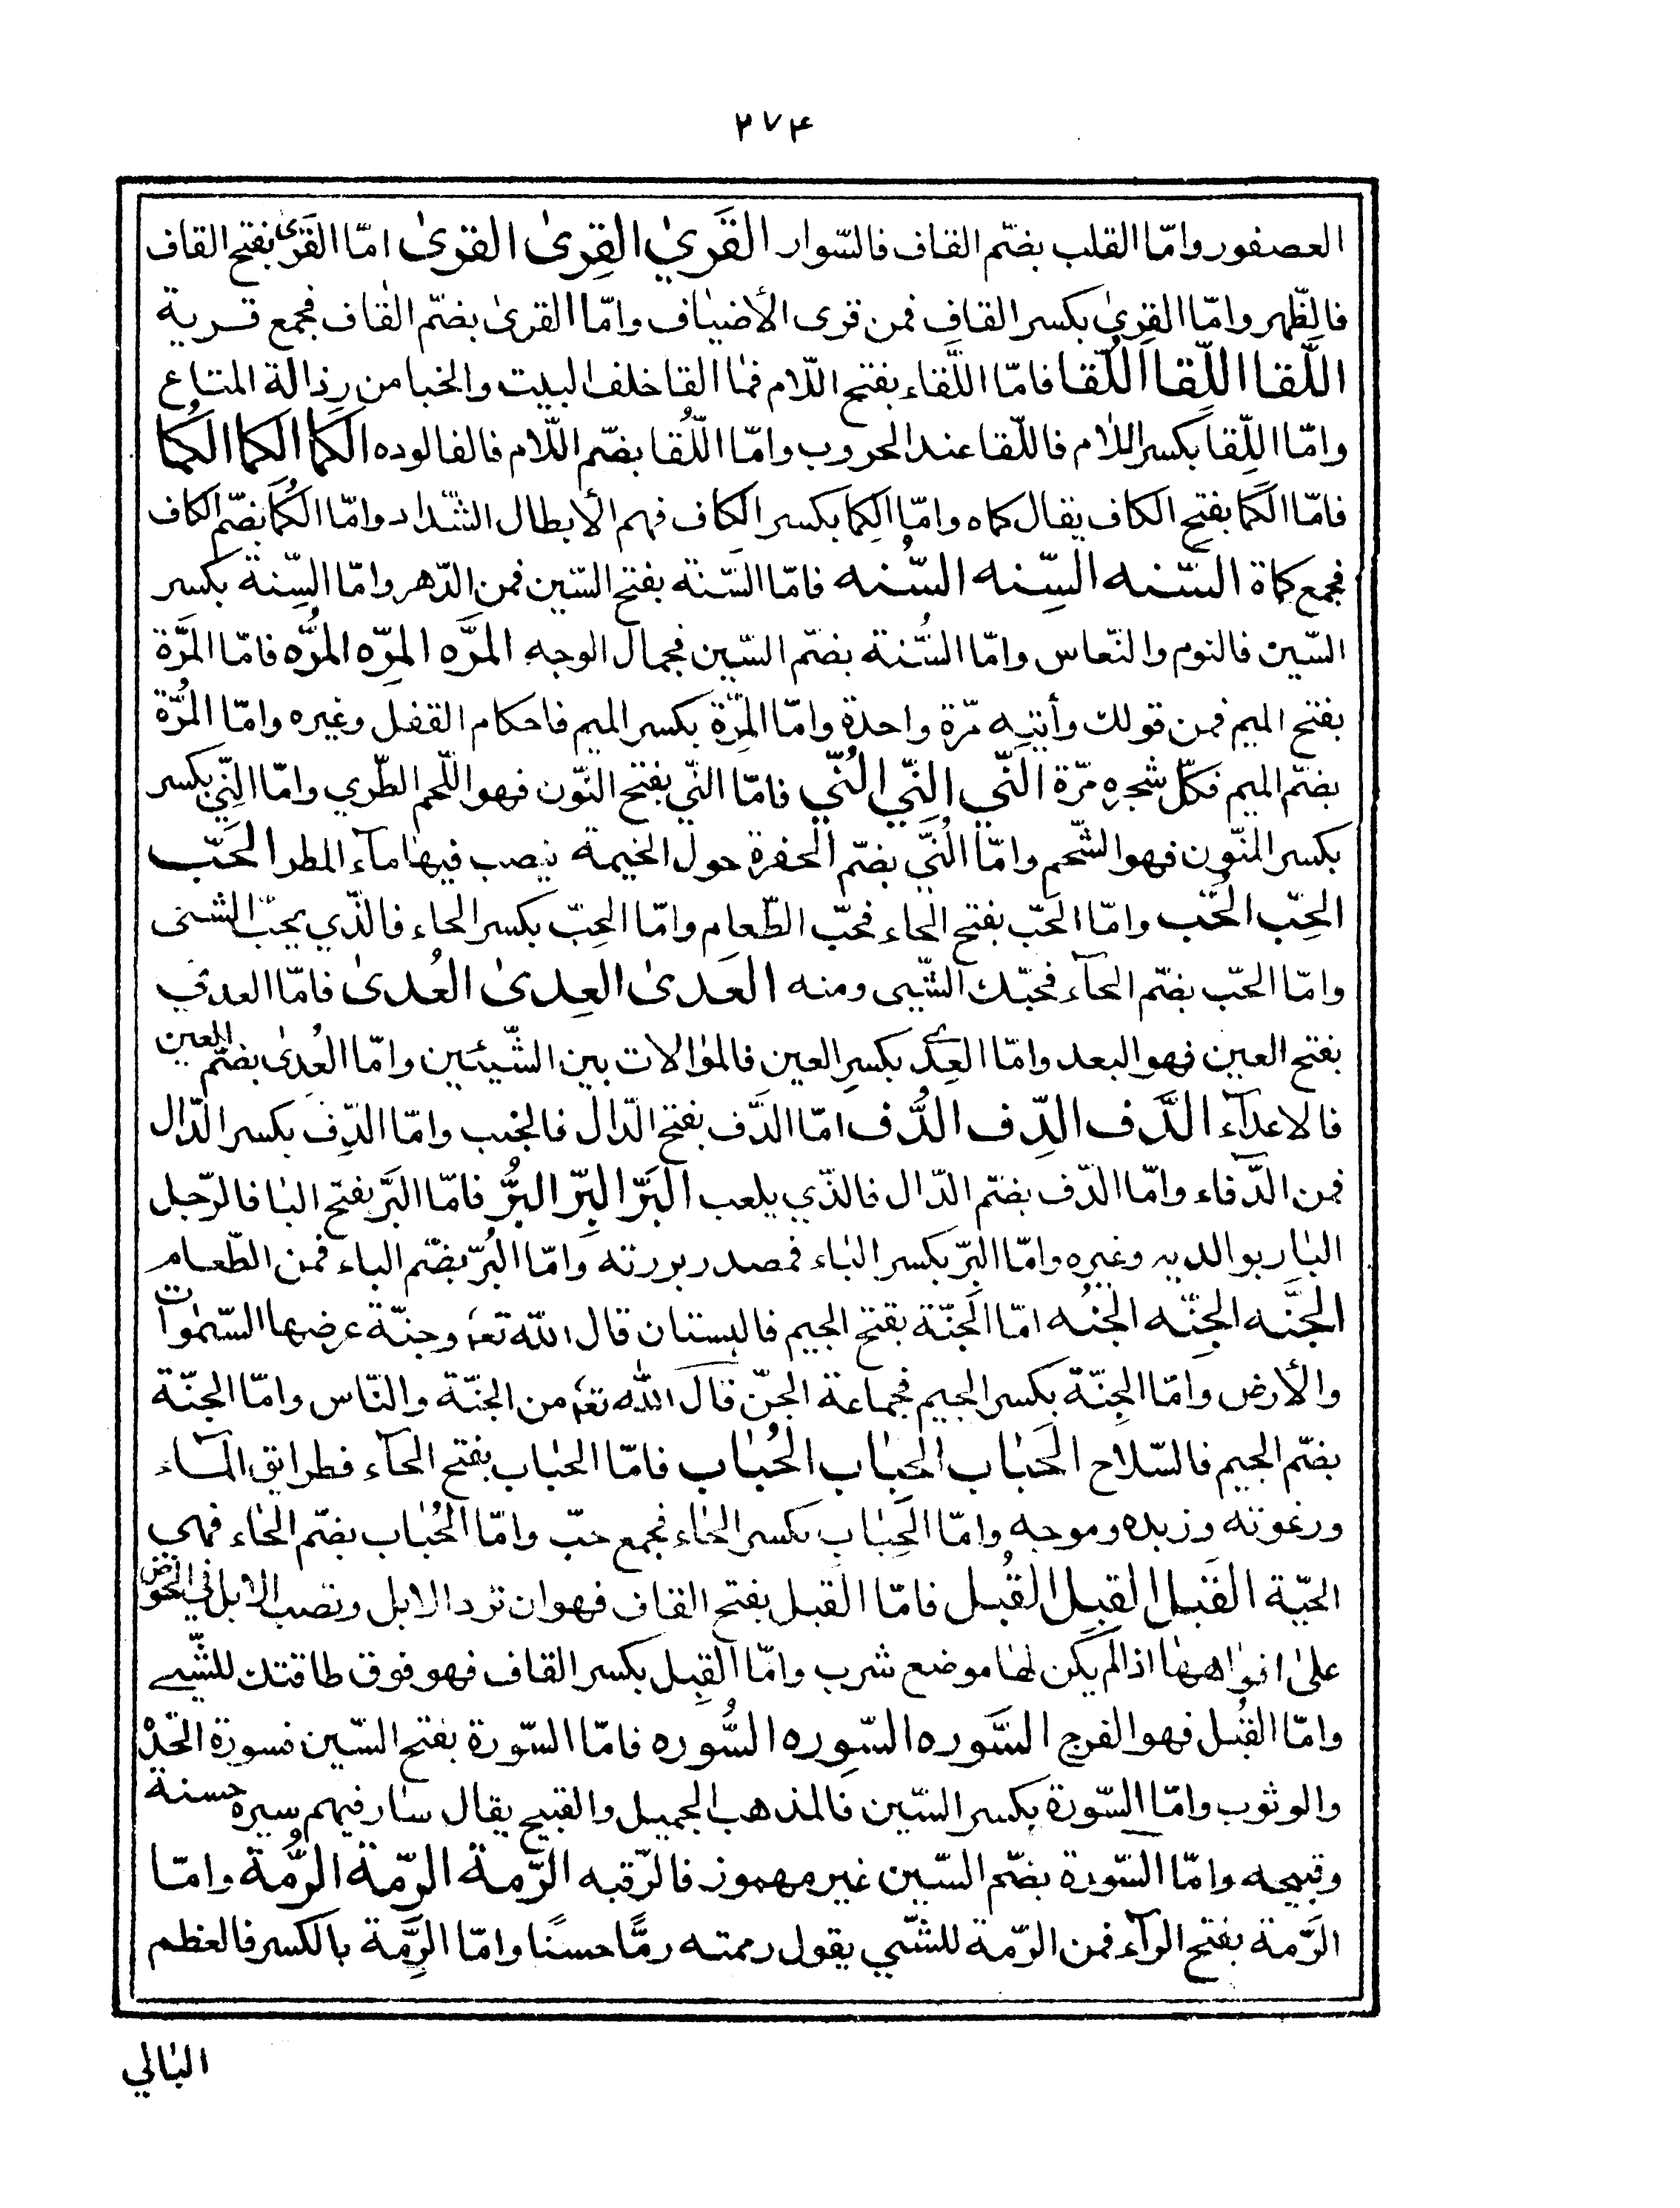 ۲۷۴
العصفور وامّا القلب بضمّ القاف فالسّوار القَریٰ القِریٰ القریٰ امّا القَریٰ بفتح القاف
فالظّهر وامّا القِریٰ بکسر القاف فمن قری الأضیٰاف وامّا القریٰ بضمّ القٰاف فجمع قریة
اللَّقا اللِّقا اللُّقا فامّا اللَّقاء بفتح اللّام فمٰا القا خلف البیت والخبا من رذالة المتاع
وامّا اللِّقا بکسر اللّام فاللّقا عند الحروب وامّا اللُّقا بضّم اللّام فالفالوده الکَما الکِما الکُما
فامّا الکَما بفتح الکاف یقال کماه وامّا الکِما بکسر الکاف فهم الأبطال الشّداد وامّا الکُما بضّم الکاف
فجمع کماة السَّنه السِّنه السُّنه فامّا السَّنة بفتح السّین فمن الدّهر وامّا السِّنة بکسر
السّین فالنوم والنّعاس وامّا السُّنة بضّم السّین فجمال الوجه المَرّه المِرّه المُرّه فامّا المَرَّة
بفتح المیم فمن قولك وأتیه مرّة واحدة وامّا المِرّة بکسر المیم فاحکام القفل وغیره وامّا المُرَّة
بضمّ المیم فکلّ شجره مرّة النَّي النِّي النُّي فامّا النّي بفتح النّون فهو اللّحم الطّري وامّا النِّي بکسر
بکسر النّون فهو الشّحم وامّا النُّي بضمّ الحفرة حول الخیمة ینصب فیهٰا مآء المطر الحَبّ
الحِبّ الحُبّ وامّا الحَبّ بفتح الحاء فحبّ الطّعام وامّا الحِبّ بکسر الحاء فالّذي یحبّ الشئی
وامّا الحبّ بضّم الحآء فحبّك الشّیی ومنه العَدیٰ العِدیٰ العُدیٰ فامّا العدي
بفتح العین فهو البعد وامّا العِدی بکسر العین فالموٰالات بین الشّیئین وامّا العُدیٰ بضمّ العین
فالاعدآء الدَّف الدِّف الدُّف امّا الدَّف بفتح الدّال فالجنب وامّا الدِّف بکسر الدّال
فمن الدّفاء وامّا الدّف بضّم الدّال فالذّي یلعب البَرّ البِرّ البُرّ فامّا البَرّ بفتح البٰا فالرّجل
البٰار بوالدیه وغیره وامّا البِرّ بکسر البٰاء فمصدر بررته وامّا البُرّ بضّم الباء فمن الطّعام
الجَنَّه الجِنّه الجُنّه امّا الجَنّة بفتح الجیم فالبستان قال اللّه تعۤ وجنّة عرضها السّمٰوات
والأرض وامّا الجِنّة بکسر الجیم فجماعة الجنّ قال اللّه تعۤ من الجنّة والنّاس وامّا الجنّة
بضّم الجیم فالسّلاح الحَبٰاب الحِبٰاب الحُبٰاب فامّا الحبٰاب بفتح الحآء فطرایق المآء
ورغوته وزبده وموجه وامّا الحِبٰاب بکسر الحٰاء فجمع حبّ وامّا الحُبٰاب بضّم الحٰاء فهی
الحیّة القَبل القِبل القُبل فامّا القَبل بفتح القاف فهو ان ترد الابل وتصب الابل في الحوض
علیٰ افوٰاههٰا اذا لم یکن لهٰا موضع شرب وامّا القِبل بکسر القاف فهو فوق طاقتك للشّیی
وامّا القُبل فهو الفرج السَّوره السِّوره السُّوره فامّا السّورة بفتح السّین فسورة الحَدّ
والوثوب وامّا السِّورة بکسر السّین فالمذهب الجمیل والقبیح یقال سٰار فیهم سیرة حسنة
وقبیحه وامّا السّورة بضّم السّین غیر مهموز فالرّقبه الرَّمة الرِّمة الرُّمة وامّا
الرَّمة بفتح الرآء فمن الرّمة للشّیي یقول رممته رمًّا حسنًا وامّا الرِّمّة بالکسر فالعظم
البٰالي